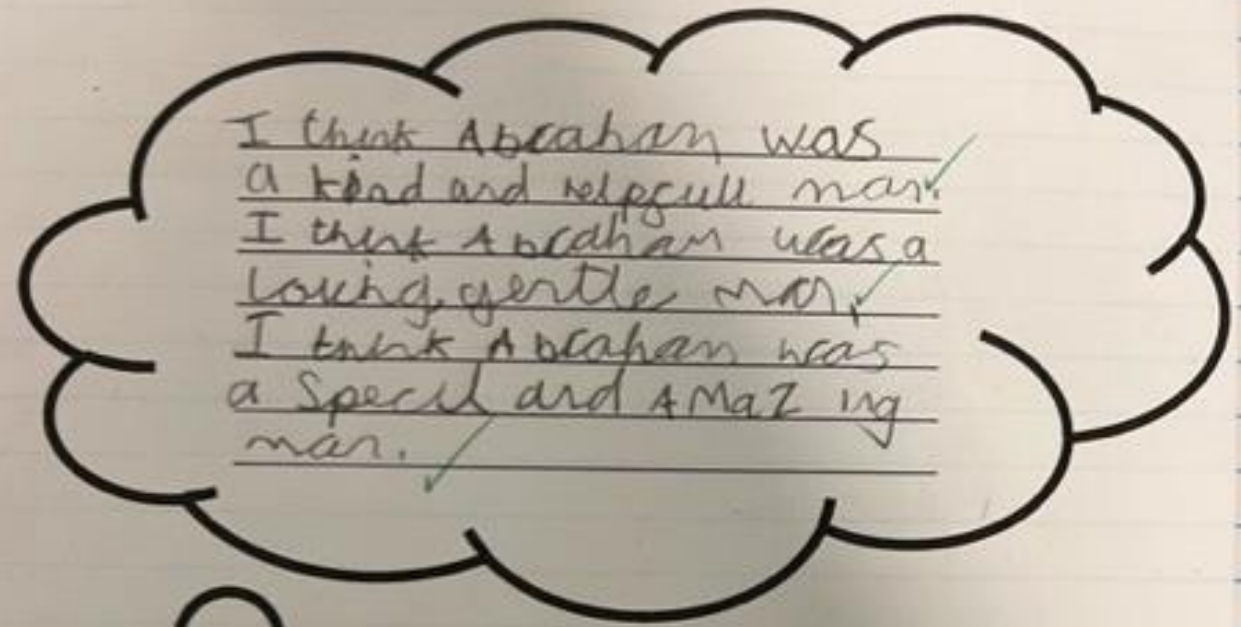 I think Abraham was
a kind and helpfull man.
I think Abraham was a
loving, gentle man.
I think Abraham was
a Specil and AMaZ ing
man.